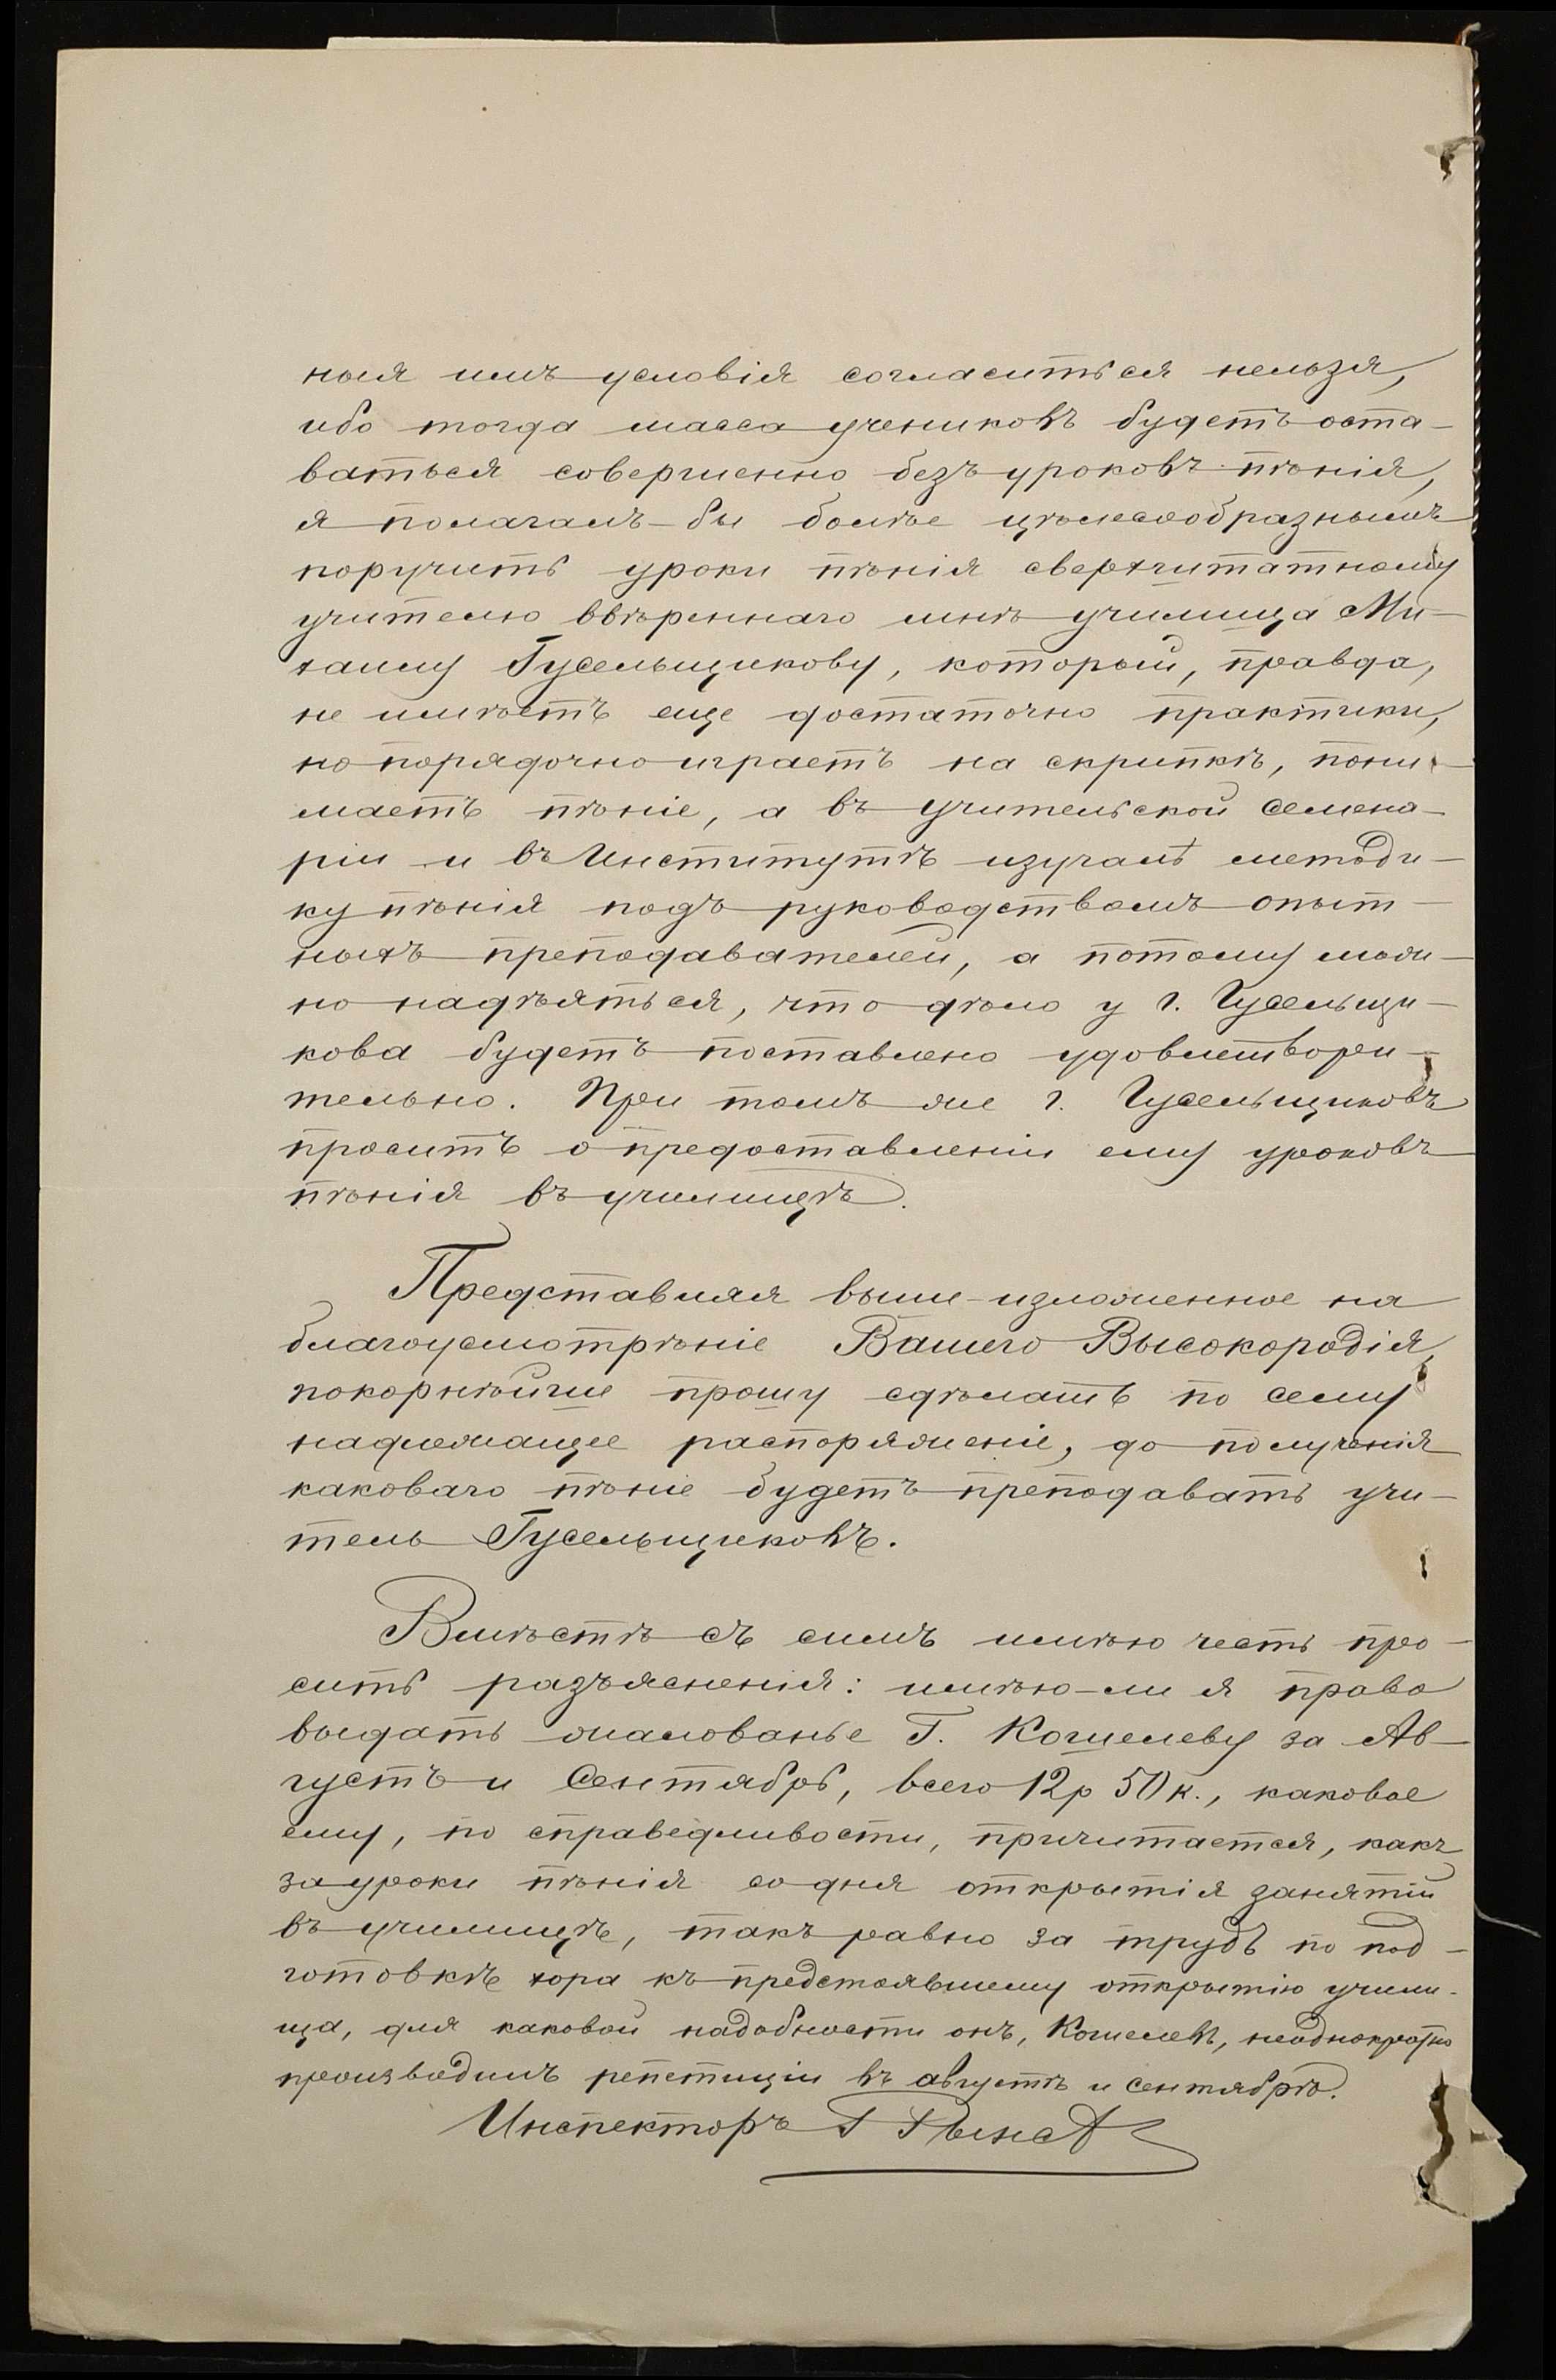 ныя имъ условія согласиться нельзя,
ибо тогда масса учениковъ будетъ оста-
ваться совершенно безъ уроковъ пѣнія,
я полагалъ-бы болѣе цѣлесообразнымъ
поручить уроки пѣнія сверхштатному
учителю ввѣреннаго мнѣ училища Ми-
хаилу Гусельщикову, который, правда,
не имѣетъ еще достаточно практики,
но порядочно играетъ на скрипкѣ, пони-
маетъ пѣніе, а въ Учительской Семена-
ріи и въ Институтѣ изучалъ методи-
ку пѣнія подъ руководствомъ опыт-
ныхъ преподавателей, а потому мож-
но надѣяться, что дѣло у г. Гусельщи-
кова будетъ поставлено удовлетвори-
тельно. При томъ же г. Гусельщиковъ
проситъ о предоставленіи ему уроковъ
пѣнія въ училищѣ.
Представляя выше-изложенное на
благоусмотрѣніе Вашего Высокородія,
покорнѣйше прошу сдѣлать по сему
надлежащее распоряженіе, до полученія
каковаго пѣніе будетъ преподавать учи-
тель Гусельщиковъ.
Вмѣстѣ съ симъ имѣю честь про-
сить разъясненія: имѣю-ли я право
выдать жалованье Г. Кошелеву за Ав-
густъ и Сентябрь, всего 12р 50к., каковое
ему, по справедливости, причитается, какъ
за уроки пѣнія со дня открытія занятій
въ училищѣ, такъ равно за трудъ по под-
готовкѣ хора къ предстоявшему открытію учили-
ща, для каковой надобности онъ, Кошелевъ, неоднократно
производилъ репетиціи въ августѣ и сентябрѣ.
Инспекторъ